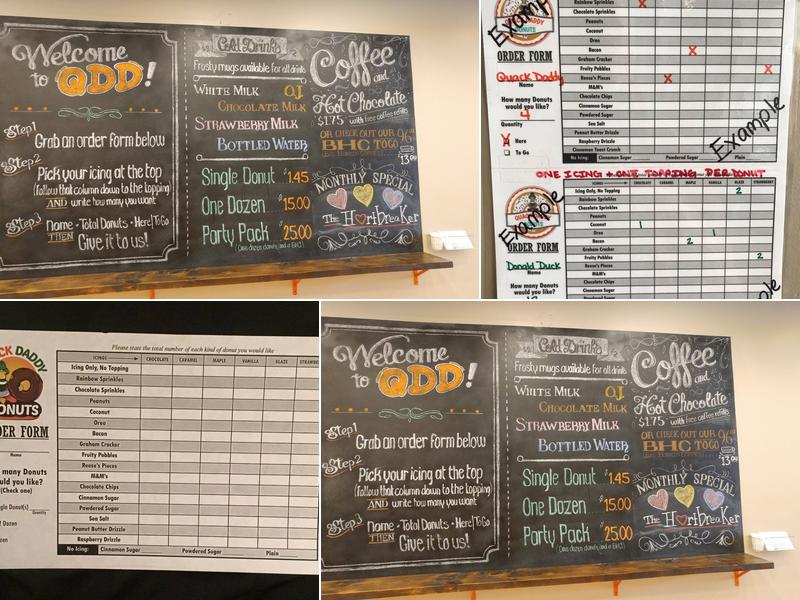 Welcome
to QDD!
Step 1
Grab an order form below
Step 2
Pick your icing at the top
(follow that column down to the topping)
AND write how many you want
Step 3
Name - Total Donuts - Here|To Go
THEN Give it to us!
Cold Drinks
Frosty mugs available for all drinks
White Milk O.J.
Chocolate Milk
Strawberry Milk
Bottled Water
Single Donut $1.45
One Dozen $15.00
Party Pack $25.00
(Two dozen donuts and a BHC)
Coffee
and
Hot Chocolate
$1.75 with free coffee refills
OR CHECK OUT OUR 96oz
BHC TO GO
13.00
Monthly Special
The HeartBreaker
Example
DADDY
DONUTS
ORDER FORM
Quack Daddy
Name
How many Donuts
would you like?
4
Quantity
X Here
To Go
Rainbow Sprinkles X
Chocolate Sprinkles
Peanuts
Coconut
Oreo
Bacon X
Graham Cracker
Fruity Pebbles X
Reese's Pieces X
M&M's
Chocolate Chips
Cinnamon Sugar
Powdered Sugar
Sea Salt
Peanut Butter Drizzle
Raspberry Drizzle
Cinnamon Toast Crunch
No Icing: Cinnamon Sugar Powdered Sugar Plain
Example
ONE ICING + ONE TOPPING PER DONUT
Example
ORDER FORM
Donald Duck
Name
How many Donuts
would you like?
ICINGS CHOCOLATE CARAMEL MAPLE VANILLA GLAZE STRAWBERRY
Icing Only, No Topping 2
Rainbow Sprinkles
Chocolate Sprinkles
Peanuts
Coconut 1
Oreo 1
Bacon 2
Graham Cracker
Fruity Pebbles 2
Reese's Pieces
M&M's
Chocolate Chips
Cinnamon Sugar
CK DADDY
ONUTS
DER FORM
Name
many Donuts
ould you like?
(Check one)
gle Donut(s)
Quantity
Dozen
Please state the total number of each kind of donut you would like
ICINGS CHOCOLATE CARAMEL MAPLE VANILLA GLAZE STRAWBE
Icing Only, No Topping
Rainbow Sprinkles
Chocolate Sprinkles
Peanuts
Coconut
Oreo
Bacon
Graham Cracker
Fruity Pebbles
Reese's Pieces
M&M's
Chocolate Chips
Cinnamon Sugar
Powdered Sugar
Sea Salt
Peanut Butter Drizzle
Raspberry Drizzle
No Icing: Cinnamon Sugar Powdered Sugar Plain
Welcome
to QDD!
Step 1
Grab an order form below
Step 2
Pick your icing at the top
(follow that column down to the topping)
AND write how many you want
Step 3
Name - Total Donuts - Here|To Go
THEN Give it to us!
Cold Drinks
Frosty mugs available for all drinks
White Milk O.J.
Chocolate Milk
Strawberry Milk
Bottled Water
Single Donut $1.45
One Dozen $15.00
Party Pack $25.00
(Two dozen donuts and a BHC)
Coffee
and
Hot Chocolate
$1.75 with free coffee refills
OR CHECK OUT OUR 96oz
BHC TO GO
13.00
Monthly Special
The HeartBreaker